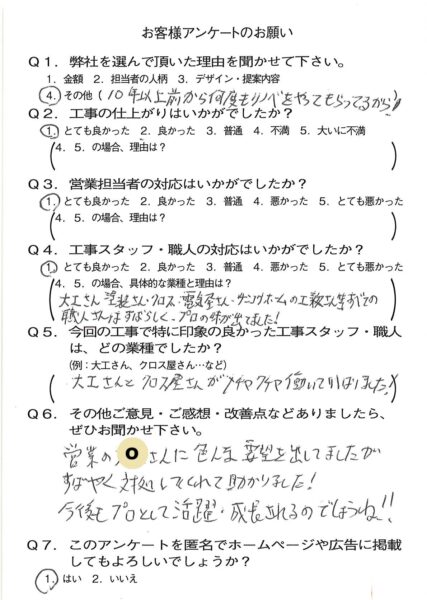 お客様アンケートのお願い
Q1．弊社を選んで頂いた理由を聞かせて下さい。
1．金額 2．担当者の人柄 3．デザイン・提案内容
4．その他（10年以上前から何度もリノベをやってもらってるから）
Q2．工事の仕上がりはいかがでしたか？
1．とても良かった 2．良かった 3．普通 4．不満 5．大いに不満
4．5．の場合、理由は？
Q3．営業担当者の対応はいかがでしたか？
1．とても良かった 2．良かった 3．普通 4．悪かった 5．とても悪かった
4．5．の場合、理由は？
Q4．工事スタッフ・職人の対応はいかがでしたか？
1．とても良かった 2．良かった 3．普通 4．悪かった 5．とても悪かった
4．5．の場合、具体的な業種と理由は？
大工さん 塗装さん・クロス・電気屋さん・サニングホームの工務さん等すべての
職人さんはすばらしく、プロの味が出てました！
Q5．今回の工事で特に印象の良かった工事スタッフ・職人
は、どの業種でしたか？
（例：大工さん、クロス屋さん…など）
（大工さんとクロス屋さんがメチャクチャ働いて
Q6．その他ご意見・ご感想・改善点などありましたら、
ぜひお聞かせ下さい。
営業の O さんに色んな要望を出してましたが
すばやく対処してくれて助かりました！
今後もプロとして活躍・成長されるのでしょうね！！
Q7．このアンケートを匿名でホームページや広告に掲載
してもよろしいでしょうか？
1．はい 2．いいえ